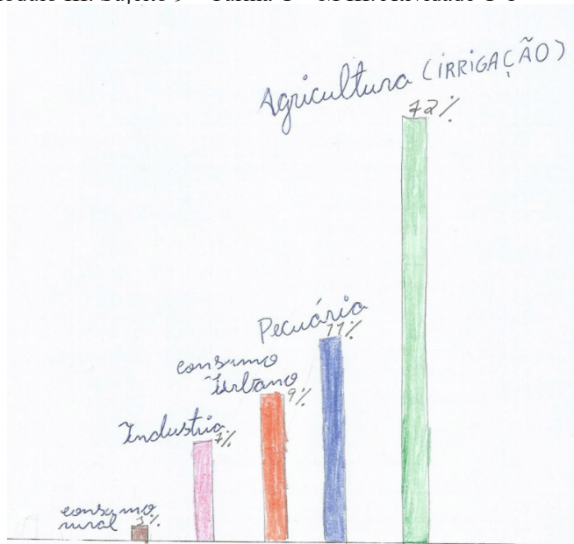 Agricultura (IRRIGAÇÃO)
72%
Pecuária
11%
consumo
Urbano
9%
Industria
7%
consumo
rural
1%